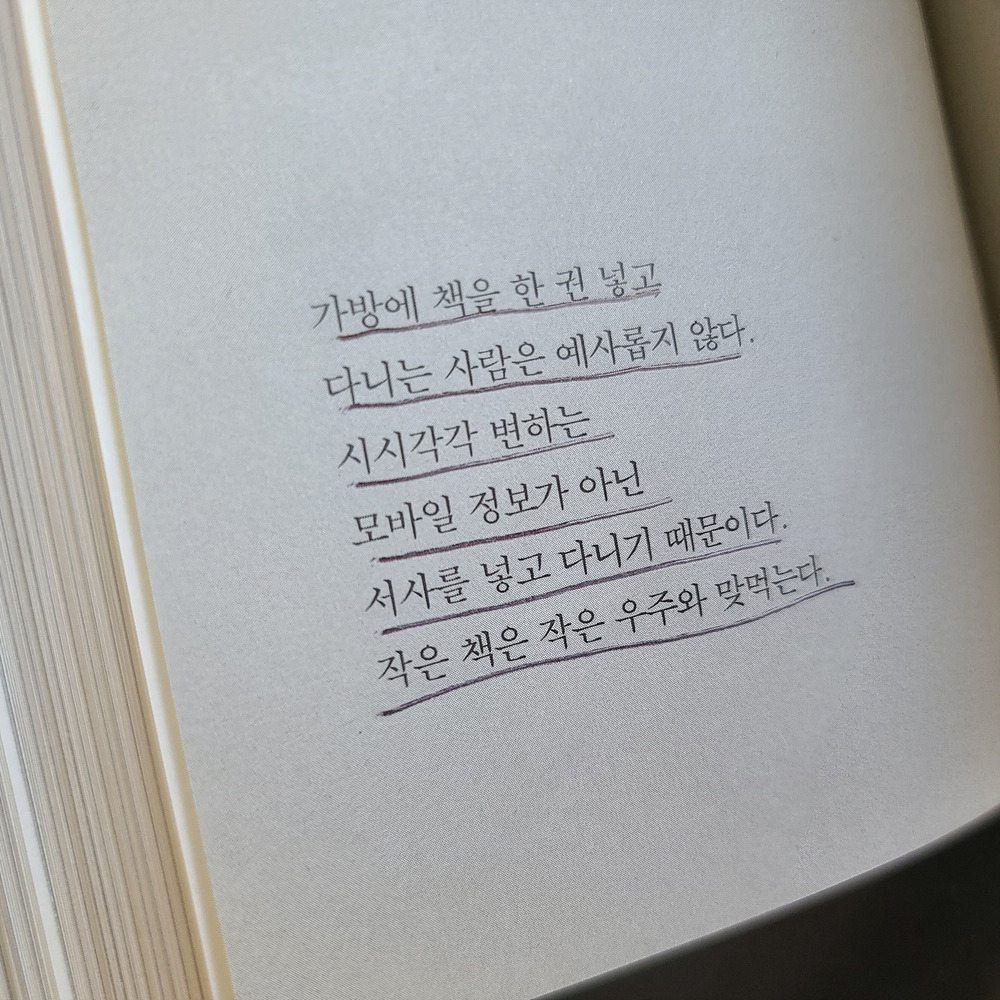 가방에 책을 한 권 넣고
다니는 사람은 예사롭지 않다.
시시각각 변하는
모바일 정보가 아닌
서사를 넣고 다니기 때문이다.
작은 책은 작은 우주와 맞먹는다.